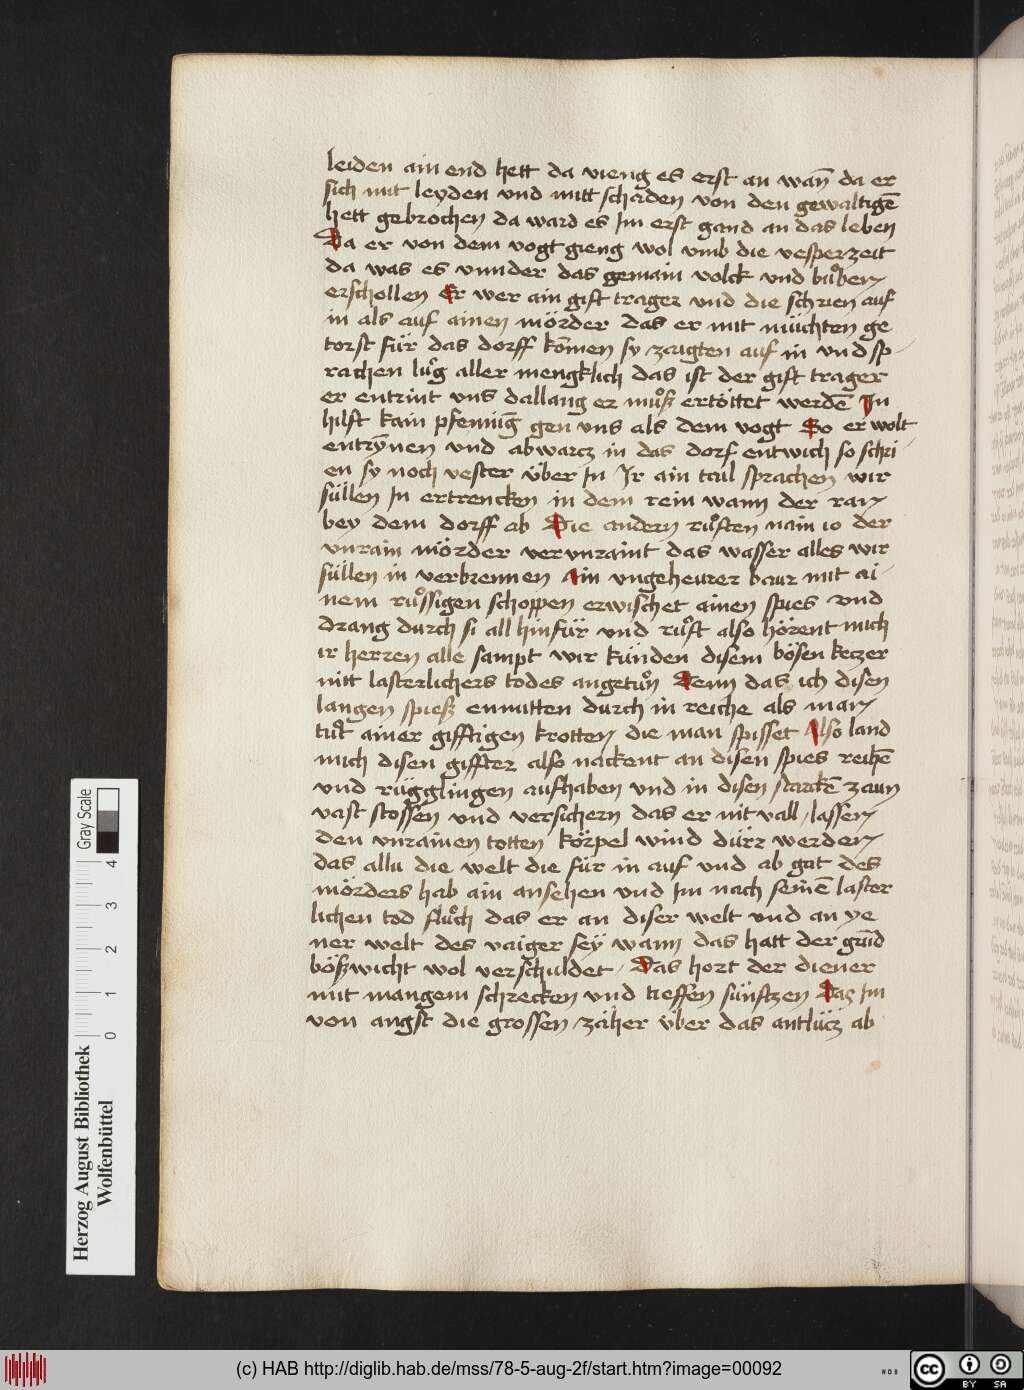 leiden ain end hett da vieng es erst an wan̄ da er
sich mit leyden vnd mitt schaden von den gewaltigē
hett gebrochen da ward es Im erst gand an das leben
Da er von dem vogt gieng wol vmb die vesperzeit
da was es vnnder das gemain volck vnd bůben
erschollen Er wer ain gift trager vnd die schrien auf
in als auf ainen mörder das er mit nüchten ge
torst für das dorff kōmen sy zaigten auf in vnd sp
rachen lůg aller mengklich das ist der gift trager
er entrint vns dallang er můß ertöttet werdē In
hilft kain pfenning gen vns als dem vogt So er wolt
entrÿnnen vnd abwarcz in das dorf entwich so schri
en sy noch vester über In Ir ain tail sprachen wir
süllen In ertrencken in dem rein wann der ran
bey dem dorff ab Die andern růften nain io der
vnrain mörder verunraint das wasser alles wir
süllen in verbrennen Ain vngeheurer baur mit ai
nem růssigen schoppen erwischet ainen spies vnd
drang durch si all hinfür vnd růft also hörent mich
ir herren alle sampt wir künden disem bösen keczer
nitt lasterlichers todes angetůn Denn das ich disen
langen spieß enmitten durch in reiche als man
tůt ainer gifftigen krotten die man spisset Also land
mich disen giffter also nackent an disen spies reihē
vnd rügglingen aufhaben vnd in disen starkē zaun
vast stossen vnd versichern das er nit vall lassen
den vnrainen totten körpel wind dürr werden
das allu die welt die für in auf vnd ab gat des
mörders hab ain ansehen vnd Im nach seinē laster
lichen tod flůch das er an diser welt vnd an ye
ner welt des vaiger seÿ wann das hatt der grūd
bößwicht wol verschuldet Das hort der diener
mit mangem schrecken vnd tieffen sünftzen Das Im
von angst die grossen zäher über das antlücz ab
Herzog August Bibliothek
Wolfenbüttel
0 1 2 3 4
Gray Scale
(c) HAB http://diglib.hab.de/mss/78-5-aug-2f/start.htm?image=00092
WDB
cc BY SA